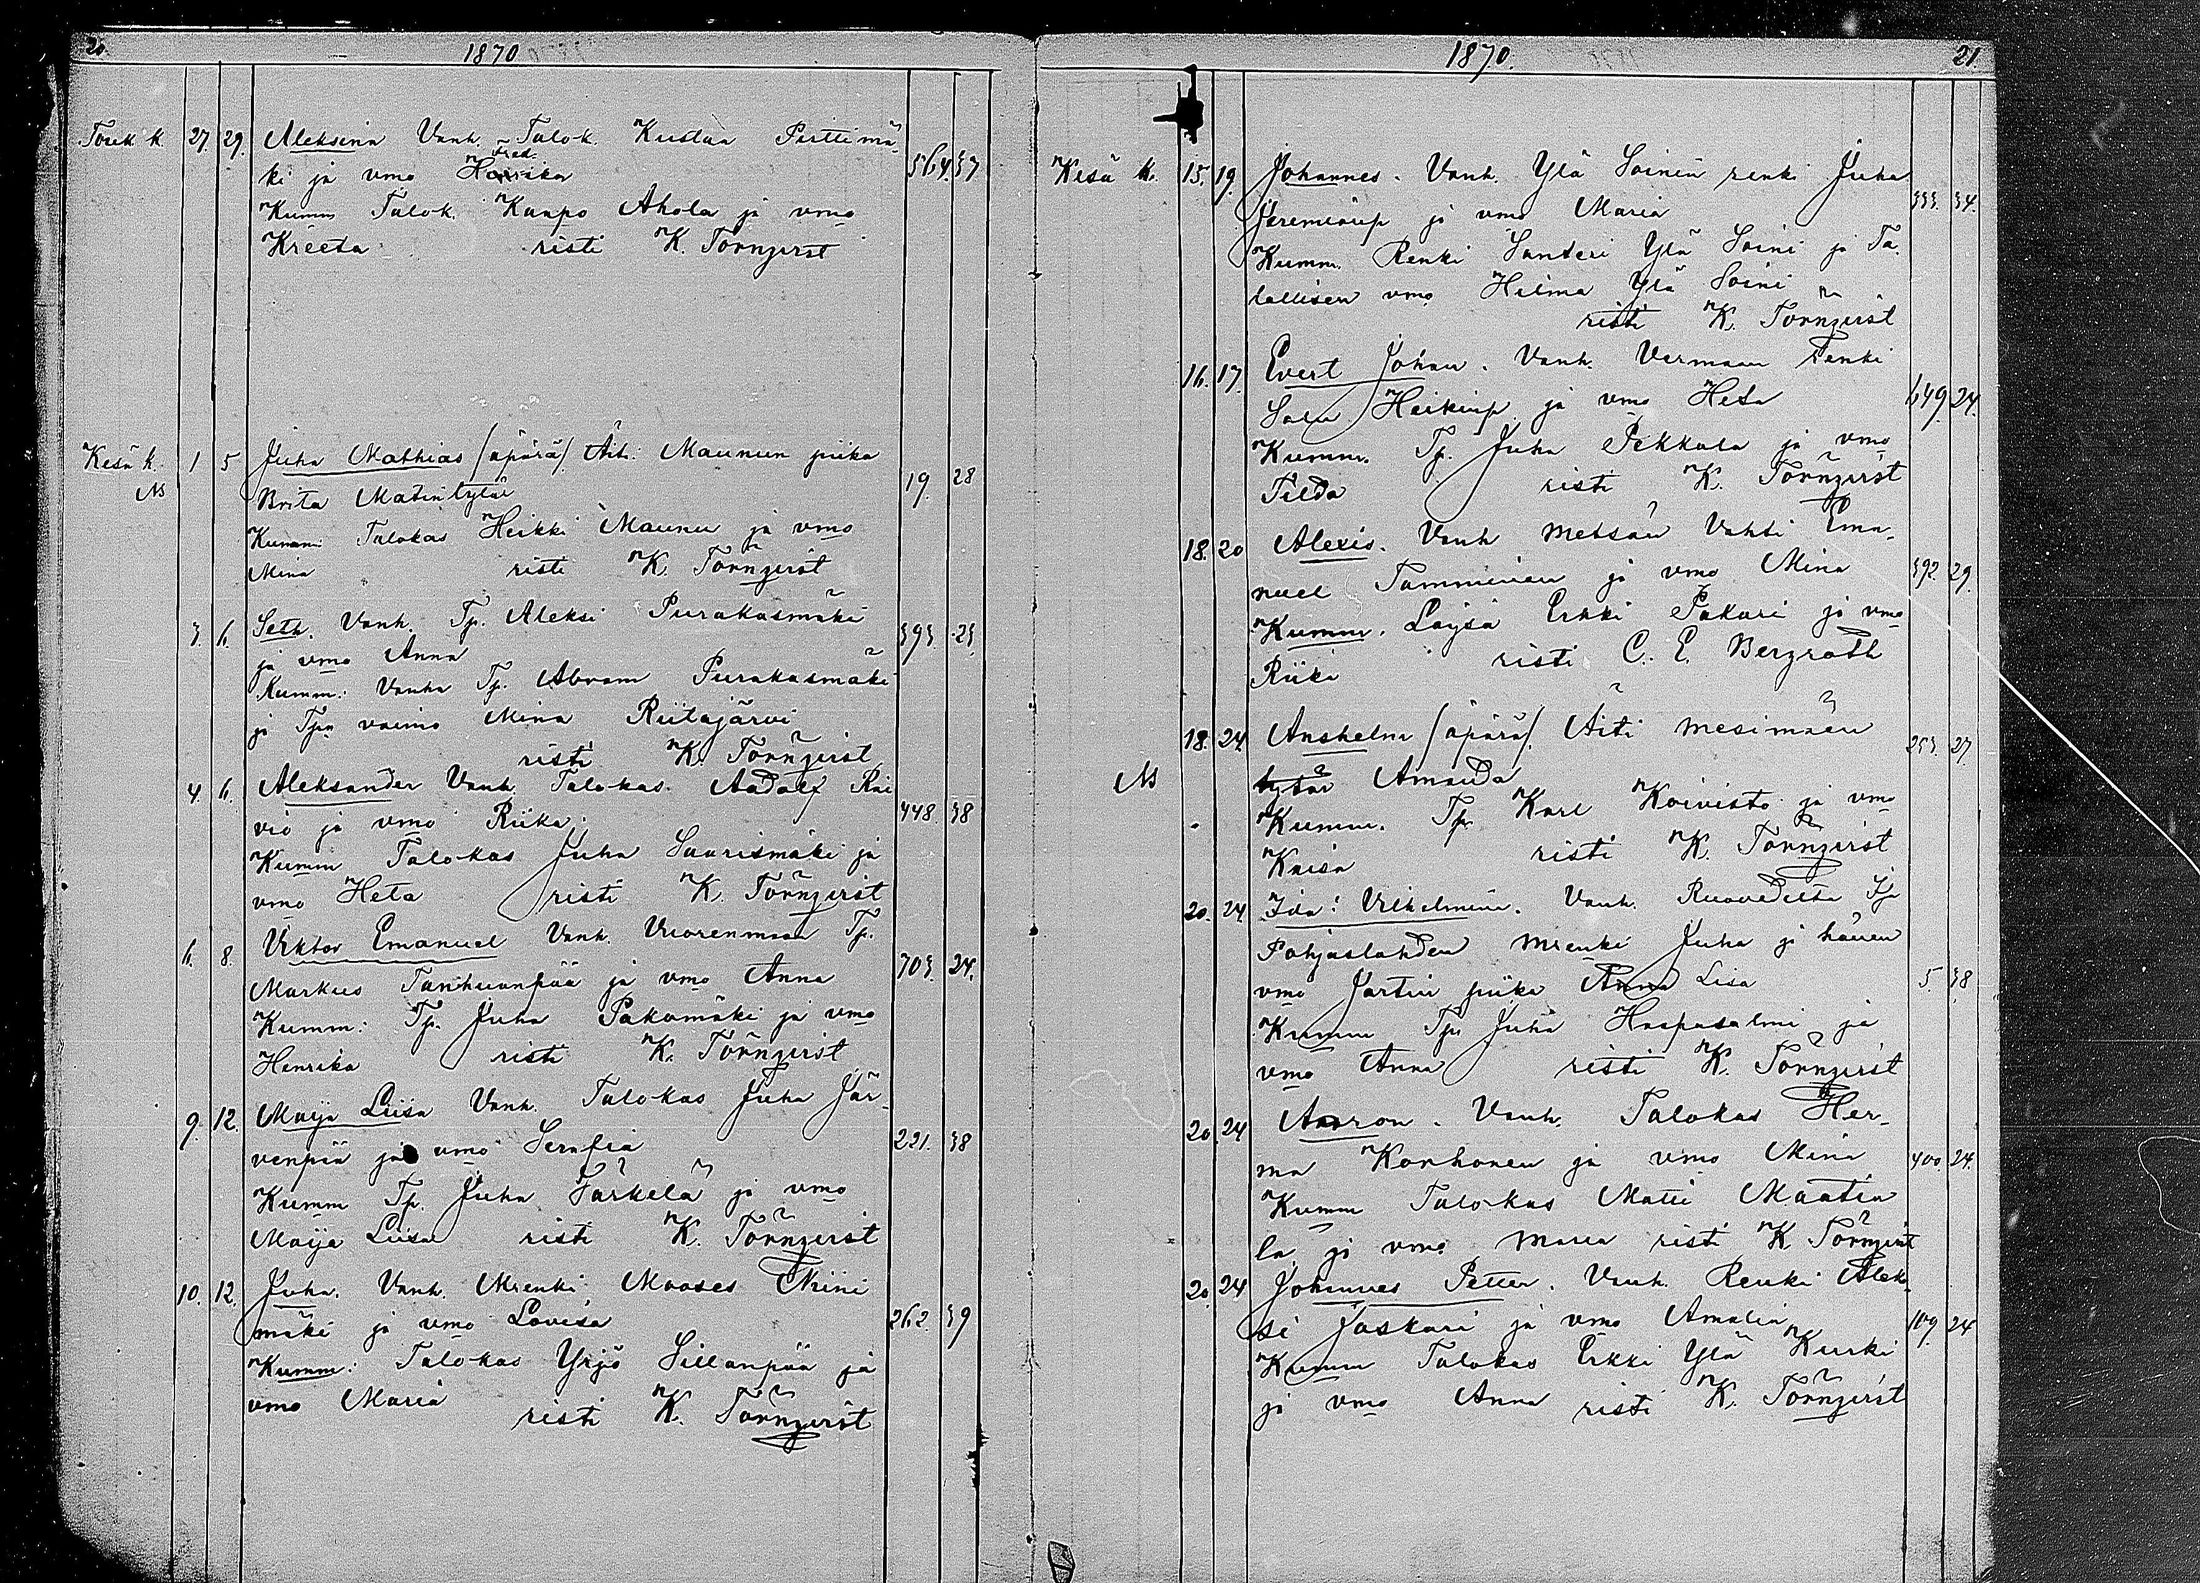 20 1870
Touk. k. 27. 29. Aleksina Vanh. Talok. Kustaa Perttimä-
ki ja vmo Fred. Henrika 564. 37
Kumm Talok. Kaapo Ahola ja vmo
Kreeta risti K. Törnqvist
Kesä k. 1 5 Juha Mathias /äpärä/. Äiti: Maunun piika
Ns Brita Matintytär 19. 28
Kumm: Talokas Heikki Maunu ja vmo
Mina risti K. Törnqvist
3. 6. Seth. Vanh. Tp. Aleksi Purakasmäki
ja vmo Anna 393. 23
Kumm: Vanha Tp. Abram Purakasmäki
ja Tpn vaimo Mina Riitajärvi
risti K. Törnqvist
4. 6. Aleksander Vanh. Talokas Aadolf Rai
vio ja vmo Riika. 448. 38
Kumm Talokas Juha Saarismäki ja
vmo Heta risti K. Törnqvist
6. 8. Viktor Emanuel Vanh. Vuorenmaa Tp.
Markus Tanhuanpää ja vmo Anna 703. 24.
Kumm: Tp. Juha Pakomäki ja vmo
Henrika risti K. Törnqvist
9. 12. Maija Liisa Vanh. Talokas Juha Jär-
venpää ja vmo Serafia 221. 38
Kumm Tp. Juha Tärkelä ja vmo
Maija Liisa risti K. Törnqvist
10. 12. Juha. Vanh. Mrenki Mooses Niini
mäki ja vmo Lovisa 262. 39
Kumm: Talokas Yrjö Sillanpää ja
vmo Maria risti K. Törnqvist
1870. 21
Kesä k. 15. 19. Johannes. Vanh. Ylä Soinin renki Juha
Jeremianp ja vmo Maria 333. 34.
Kumm. Renki Santeri Ylä Soini ja Ta-
lallisen vmo Hilma Ylä Soini
risti K. Törnqvist
16. 17. Evert Johan. Vanh. Varmaan renki
Salu Heikinp. ja vmo Heta 649. 24.
Kumm. Tp. Juha Pekkala ja vmo
Tilda risti K. Törnqvist
18. 20 Alexis. Vanh metsän Vahti Ema-
nuel Tamminen ja vmo Mina 392. 29.
Kumm. Erkki Pakari ja vmo
Riika risti C. E. Bergroth
18. 24 Anshelm /äpärä/. Äiti Mesimäen
Ns tytär Amanda 253. 27.
Kumm. Tp. Karl Koivisto ja vmo
Kaisa risti K. Törnqvist
20. 24 Ida Vilhelmina. Vanh. Ruovedeltä
Pohjaslahden mrenki Juha ja hänen
vmo piika Anna Lisa 5. 38
Kumm Tp. Juha Haapasalmi ja
vmo Anna risti K. Törnqvist
20 24 Aaron. Vanh. Talokas Her-
ma Korhonen ja vmo Mina 400. 24.
Kumm Talokas Matti Maatia
la ja vmo Maria risti K. Törnqvist
20. 24 Johannes Petter. Vanh. Renki Alek-
si Jaskari ja vmo Amalia 109. 24
Kumm Talokas Erkki Ylä Kurki
ja vmo Anna risti K. Törnqvist